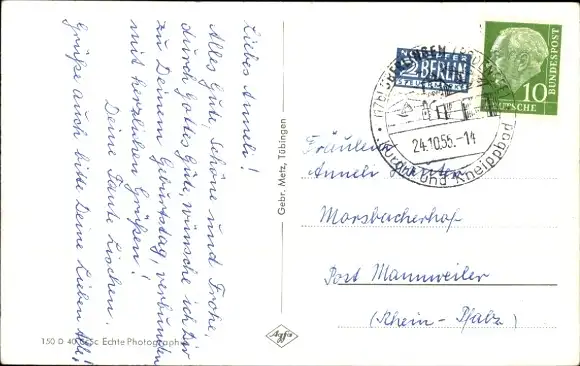 Liebes Anneli!
Alles Gute, Schöne und Frohe,
durch Gottes Güte, wünsche ich Dir
zu Deinem Geburtstag, verbunden
mit herzlichen Grüßen!
Deine Tante Lieschen.
Grüße auch bitte Deine Lieben alle!
150 D 40 Echte Photographie
Gebr. Metz, Tübingen
Agfa
NOTOPFER
2 BERLIN
STEUERMARKE
DEUTSCHE BUNDESPOST
10
24.10.55.-14
Kurort und Kneippbad
Fräulein
Anneli
Morsbacherhof
Post Mannweiler
(Rhein-Pfalz)